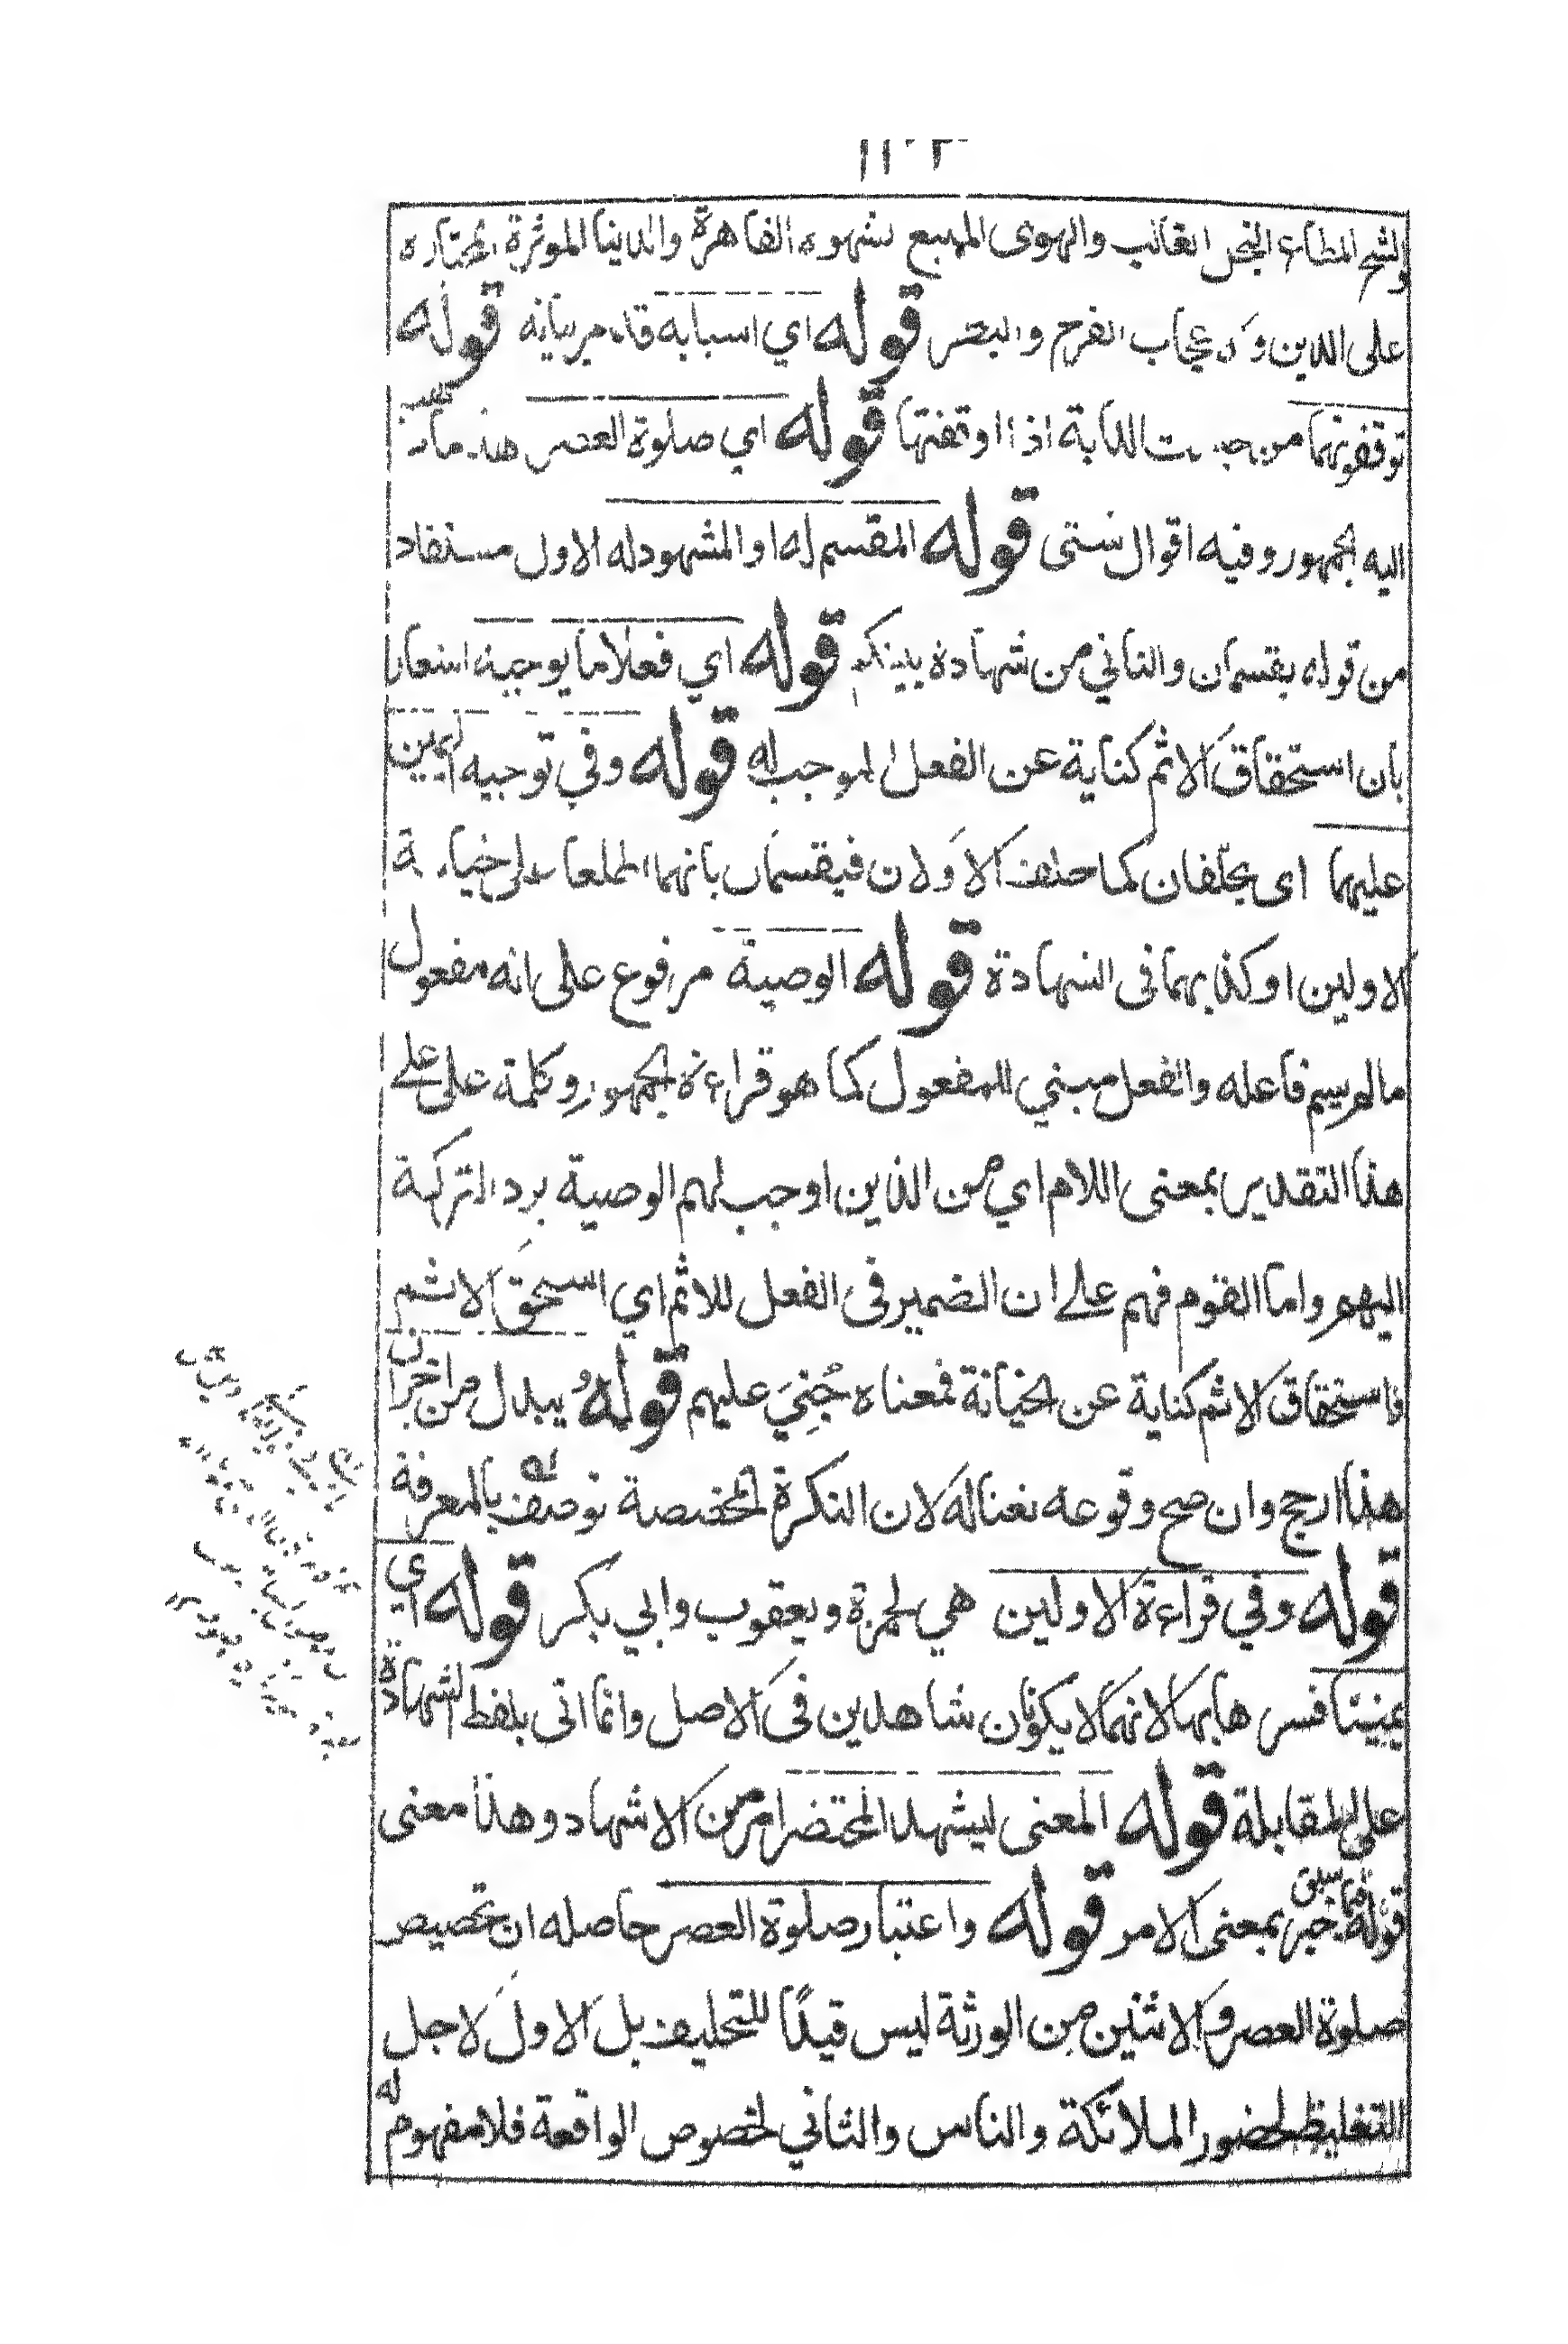 والشح المطاع البخل الغالب والهوى المتبع شهوه القاهرة والدنيا الموثرة المختاره
على الدين و عجاب الفرح والبصر قوله اي اسبابه قد مر بيانه قوله
توقفونهما من الدابة اذا اوقفتها قوله اي صلوة العصر هذ ما
اليه الجمهور وفيه اقوال شتى قوله المقسم له او المشهود له الاول مستفاد
من قوله يقسمان والثاني من شهادة بينكم قوله اي فعلا ما يوجبه اشعار
بان استحقاق الاثم كناية عن الفعل الموجب له قوله وفي توجيه اليمين
عليهما اى يحلفان كما حلف الاولان فيقسمان بانهما اطلعا على خيانة
الاولين او كذبهما فى الشهادة قوله الوصية مرفوع على انه مفعول
مالم يسم فاعله والفعل مبني للمفعول كما هو قراءة الجمهور وكلمة على على
هذا التقدير بمعنى اللام اي من الذين اوجب لهم الوصية برد التركة
اليهم واما القوم فهم على ان الضمير فى الفعل للاثم اي استحق الاثم
فاستحقاق الاثم كناية عن الخيانة فمعناه جُنِيَ عليهم قوله يبدل من اخران
هذا ارجح وان صح وقوعه نعتا له لان النكرة المخصصة توصف بالمعرفة
قوله وفي قراءة الاولين هي لحمزة ويعقوب وابي بكر قوله اي
يميننا فسر هابها لانهما لا يكونان شاهدين فى الاصل وانما اتى بلفظ الشهادة
على المقابلة قوله المعنى ليشهد المحتضر امر من الاشهاد وهذا معنى
قوله خبر بمعنى الامر قوله واعتبار صلوة العصر حاصله ان تخصيص
صلوة العصر والاثنين من الورثة ليس قيدًا للتحليف بل الاول لاجل
التغليظ لحضور الملائكة والناس والثاني لخصوص الواقعة فلا مفهوم له